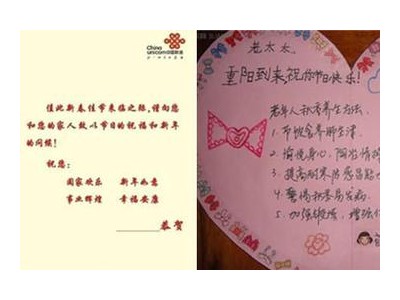 China
unicom中国联通
值此新春佳节来临之际,谨向您
和您的家人致以节日的祝福和新年
的问候!
祝您:
阖家欢乐 新年如意
事业辉煌 幸福安康
恭贺
老太太
重阳到来,祝你节日快乐!
老年人秋季养生方法
1.
2. 愉悦身心,
3. 提高耐寒防感冒
4. 警惕秋季易发病
5. 加强锻炼,增强